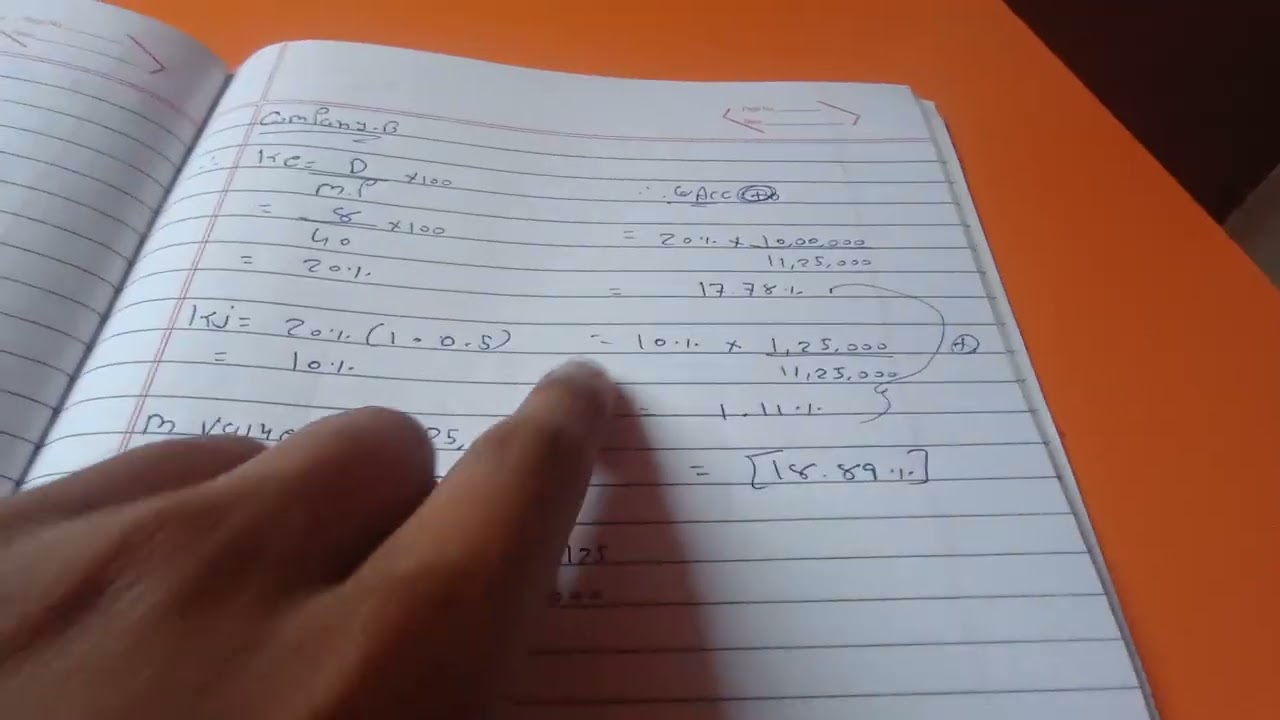 Company-B
∴ Ke = D / M.P × 100
= 8 / 40 × 100
= 20%
Kj = 20% (1 - 0.5)
= 10%
M Value
25,
125
000
∴ WACC
= 20% × 10,00,000 / 11,25,000
= 17.78%
= 10% × 1,25,000 / 11,25,000 +
= 1.11%
= [18.89%]